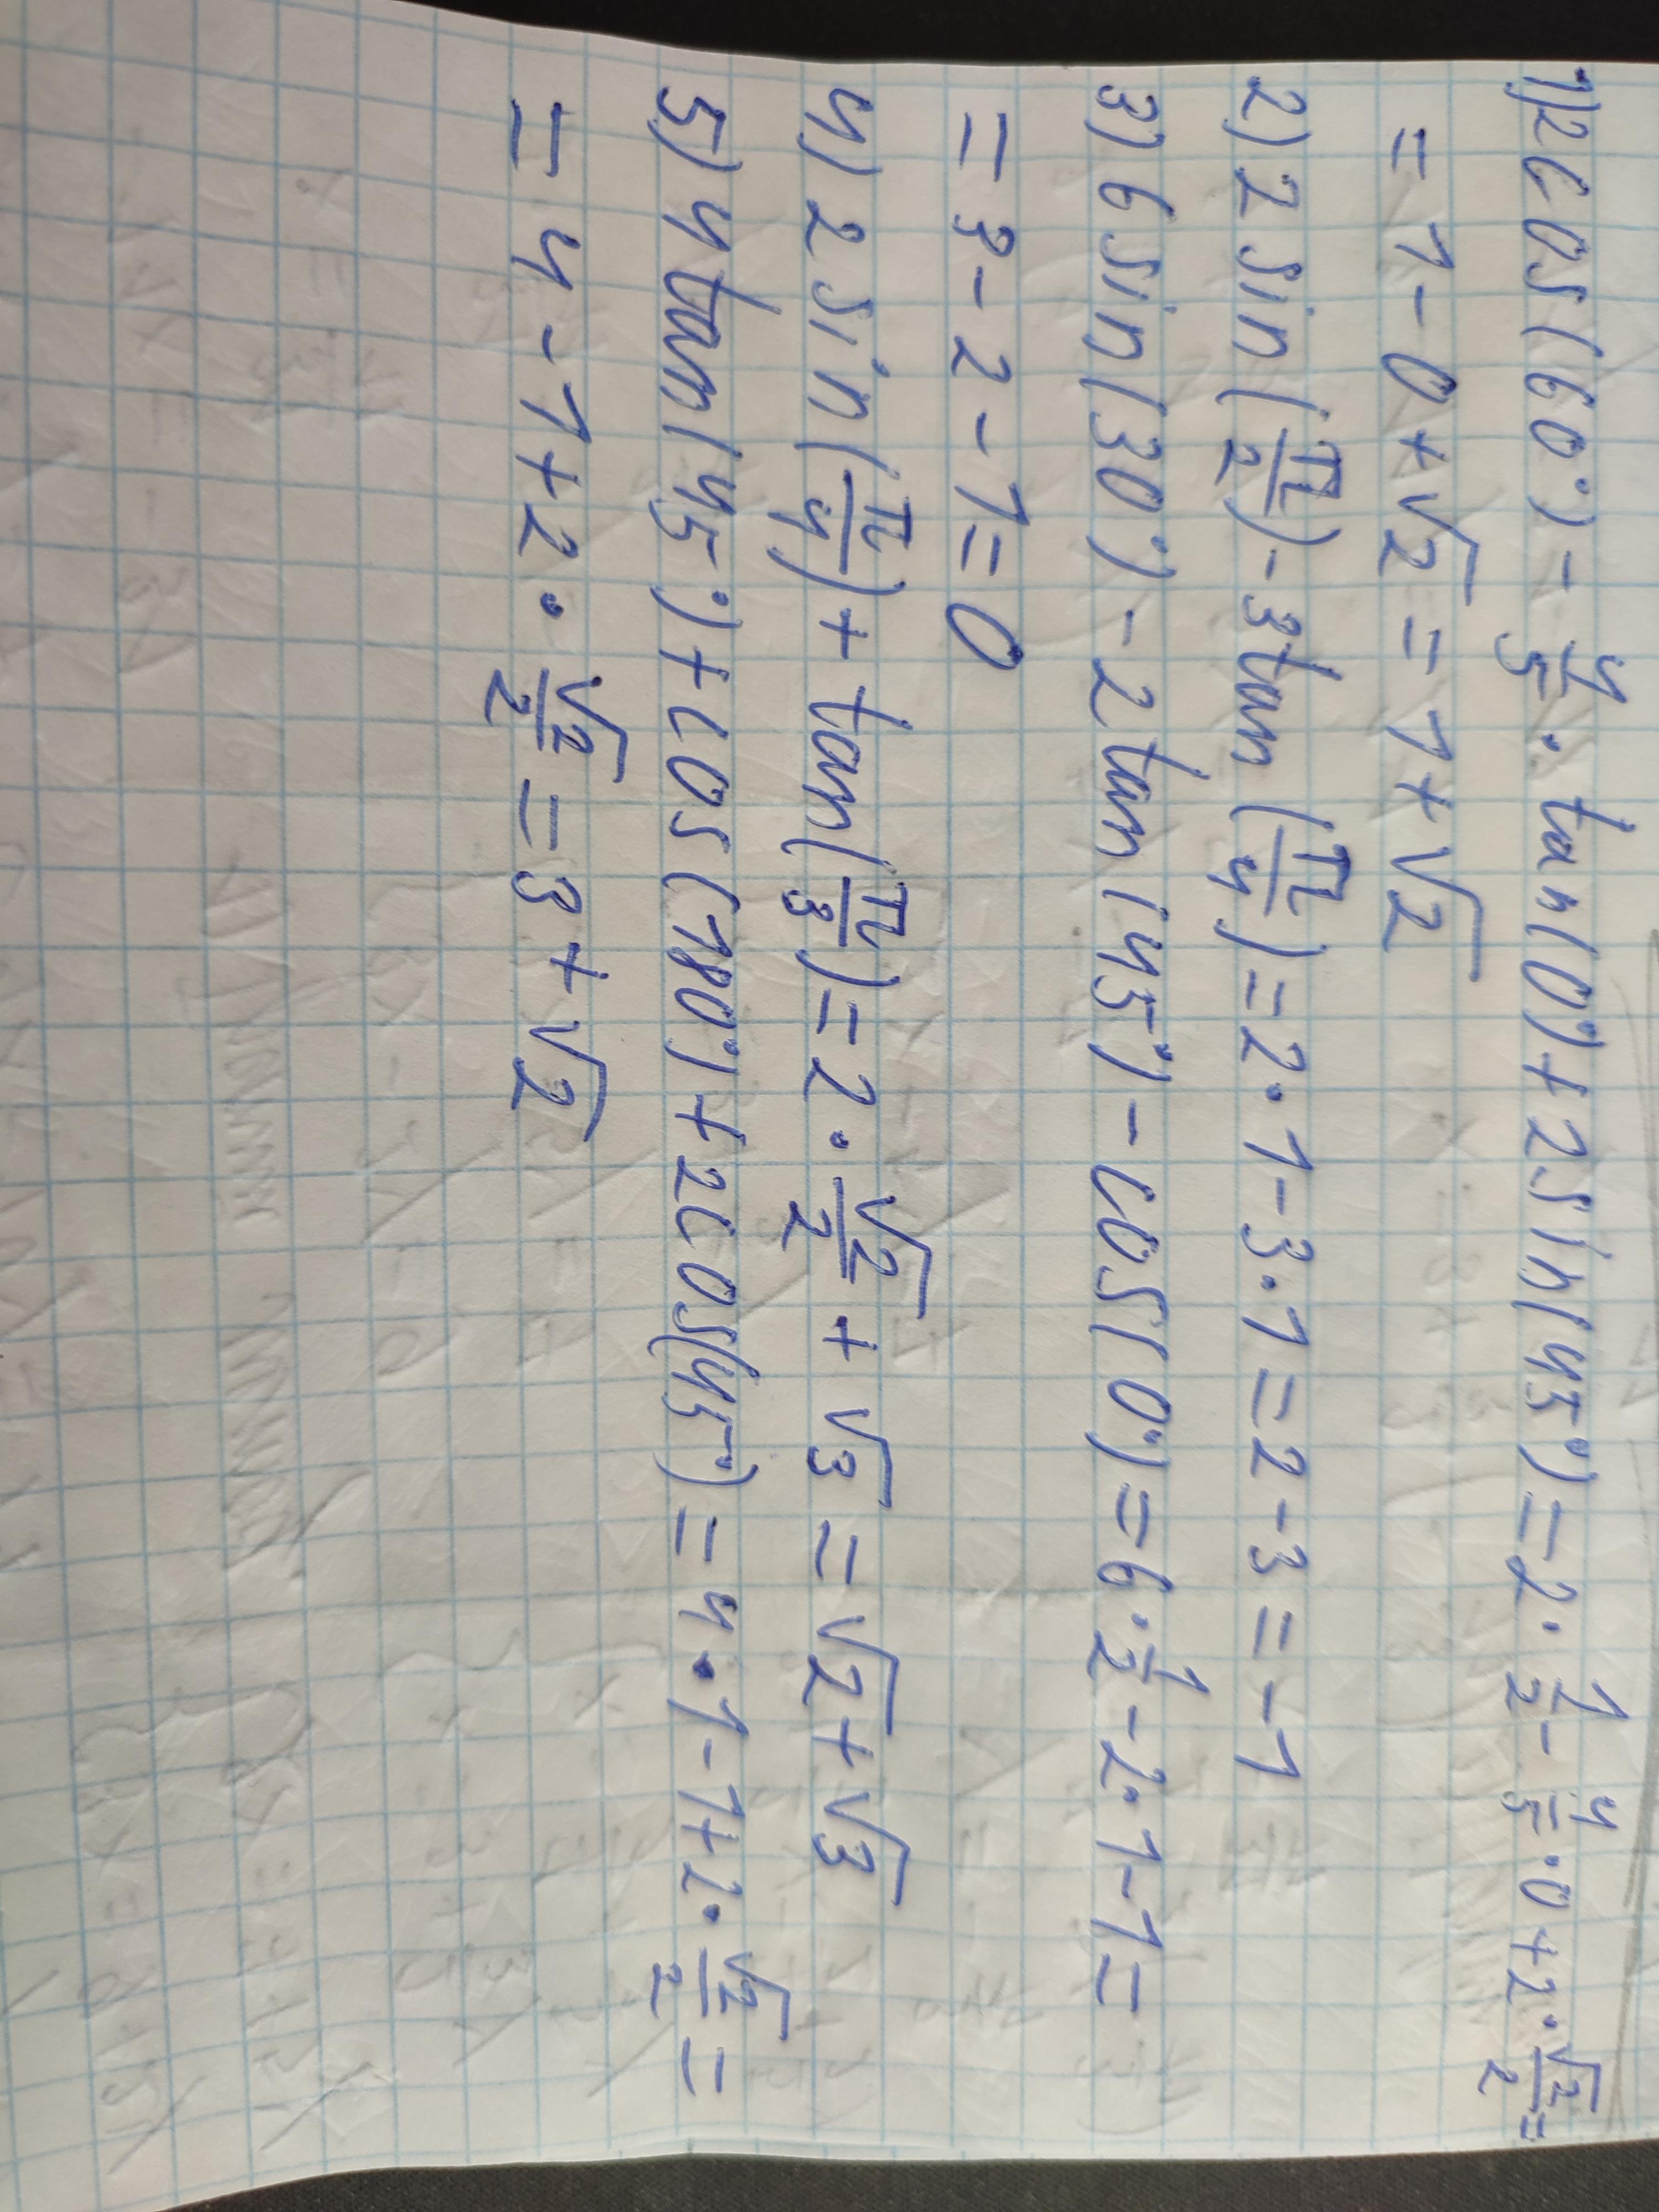 1) 2cos(60°) - 4/5 · tan(0°) + 2sin(45°) = 2 · 1/2 - 4/5 · 0 + 2 · √2/2 =
= 1 - 0 + √2 = 1 + √2
2) 2 sin(π/2) - 3tan(π/4) = 2 · 1 - 3 · 1 = 2 - 3 = -1
3) 6sin(30°) - 2tan(45°) - cos(0°) = 6 · 1/2 - 2 · 1 - 1 =
= 3 - 2 - 1 = 0
4) 2 sin(π/4) + tan(π/3) = 2 · √2/2 + √3 = √2 + √3
5) 4tan(45°) + cos(180°) + 2cos(45°) = 4 · 1 - 1 + 2 · √2/2 =
= 4 - 1 + 2 · √2/2 = 3 + √2